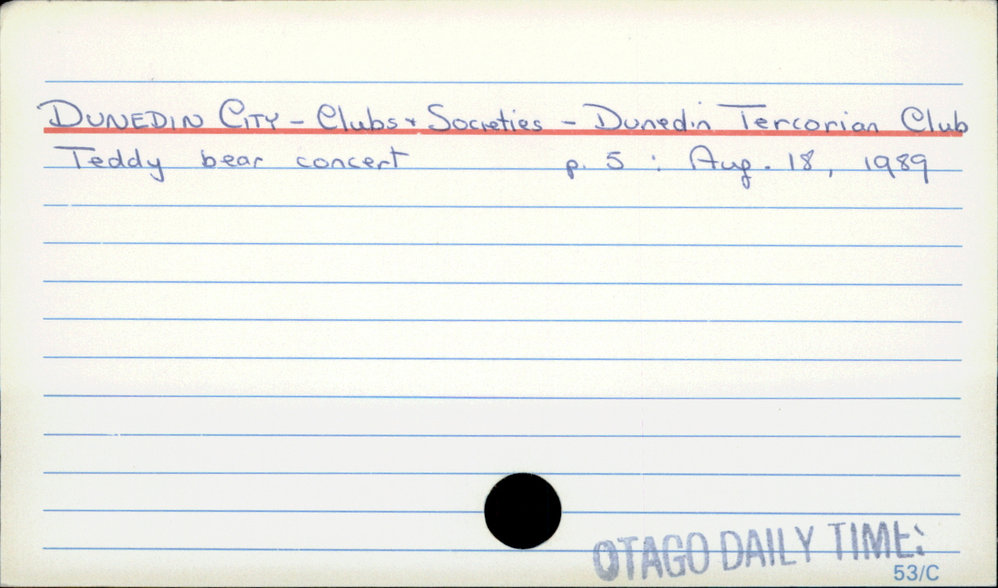 DUNEDIN CITY - Clubs + Societies - Dunedin Tercorian Club
Teddy bear concert p. 5 : Aug. 18, 1989
OTAGO DAILY TIME:
53/C